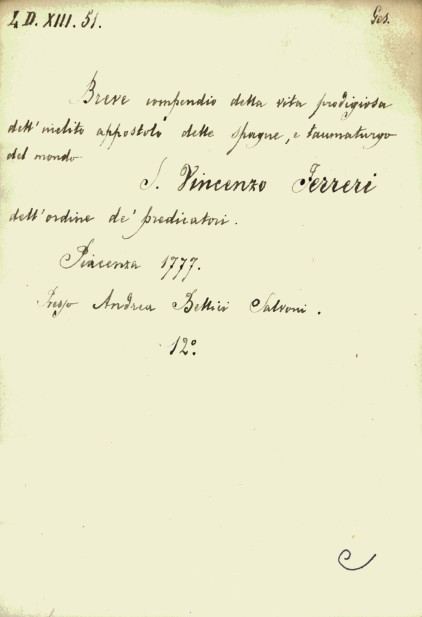 L D. XIII. 51. Ges.
Breve compendio della vita prodigiosa
dell' inclito appostolo delle spagne, e taumaturgo
del mondo
S. Vincenzo Ferreri
dell' ordine de' predicatori.
Piacenza 1777.
Presso Andrea Bellici Salvoni.
12º.